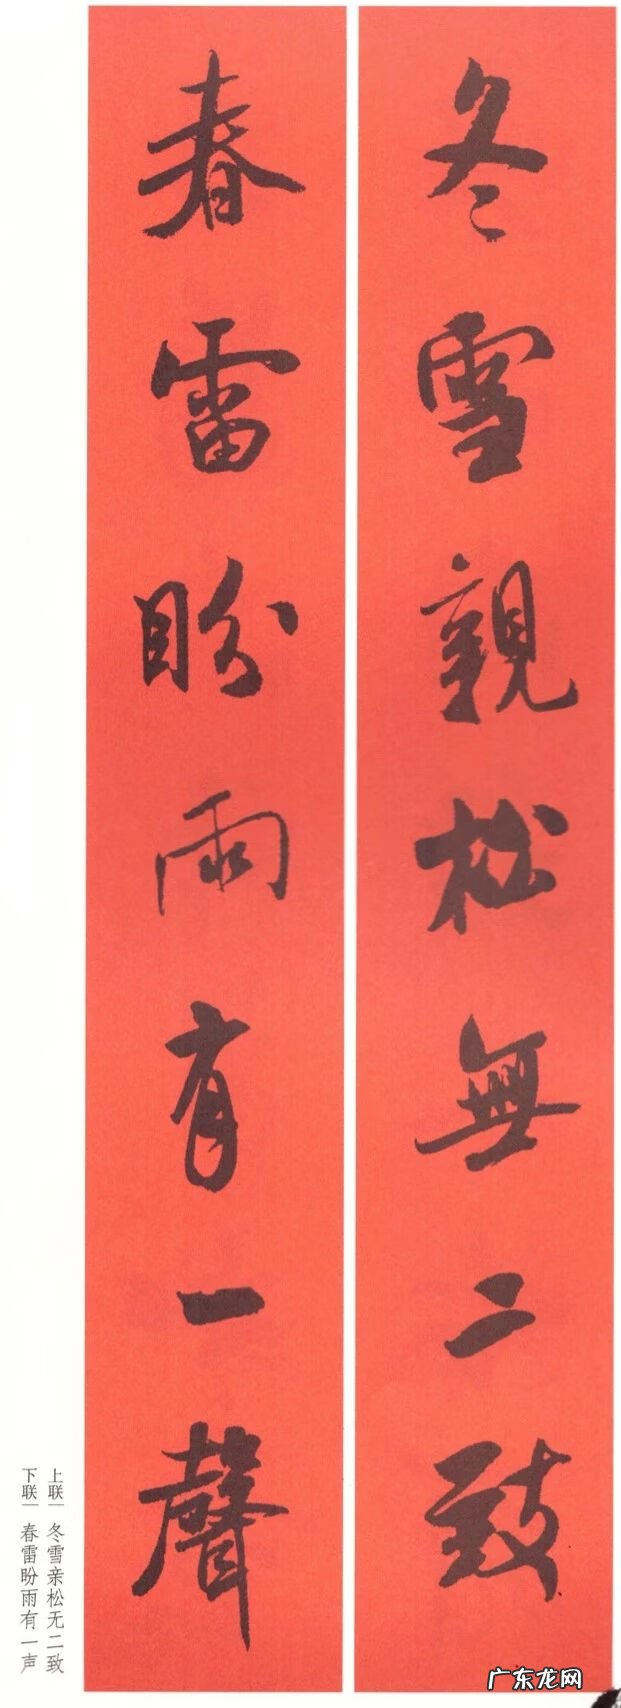 冬雪親松無二致
春雷盼雨有一聲
上联｜冬雪亲松无二致
下联｜春雷盼雨有一声
广东龙网